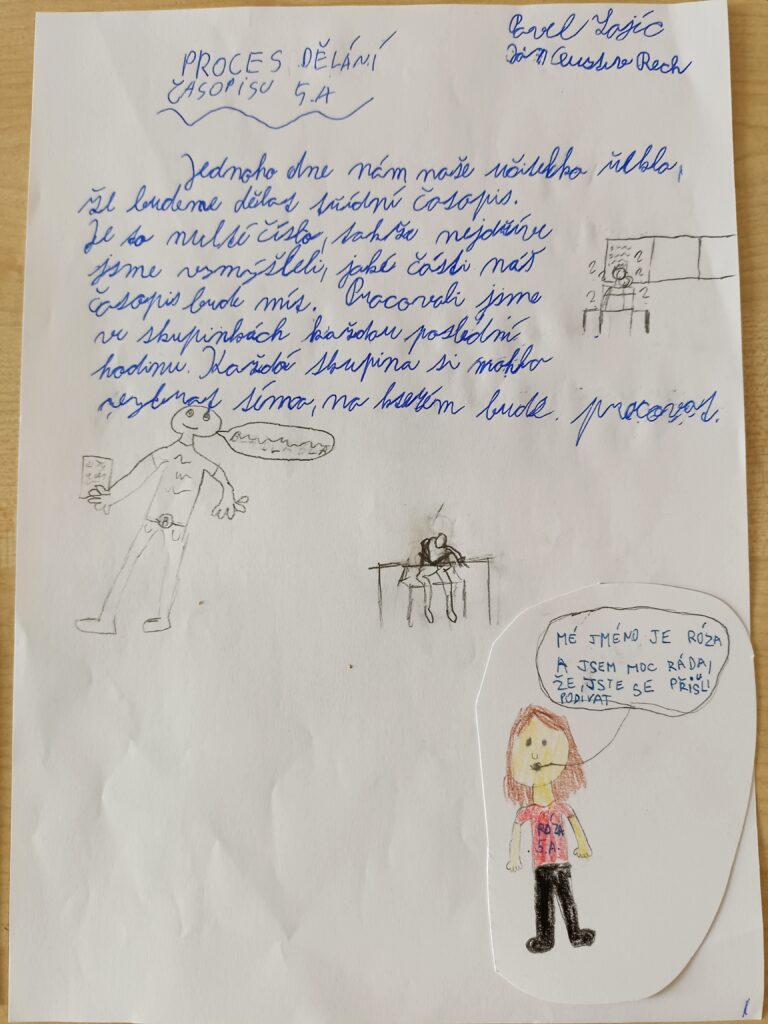 Pavel
PROCES DĚLÁNÍ
ČASOPISU 5.A
Jednoho dne nám naše učitelka řekla,
že budeme dělat třídní časopis.
Je to nulté číslo, takže nejdříve
jsme vymýšleli, jaké části náš
časopis bude mít. Pracovali jsme
ve skupinkách každou poslední
hodinu. Každá skupina si mohla
vybrat téma, na kterém bude pracovat.
MÉ JMÉNO JE RÓZA
A JSEM MOC RÁDA,
ŽE JSTE SE PŘIŠLI
PODÍVAT
RÓZA
5.A.
1